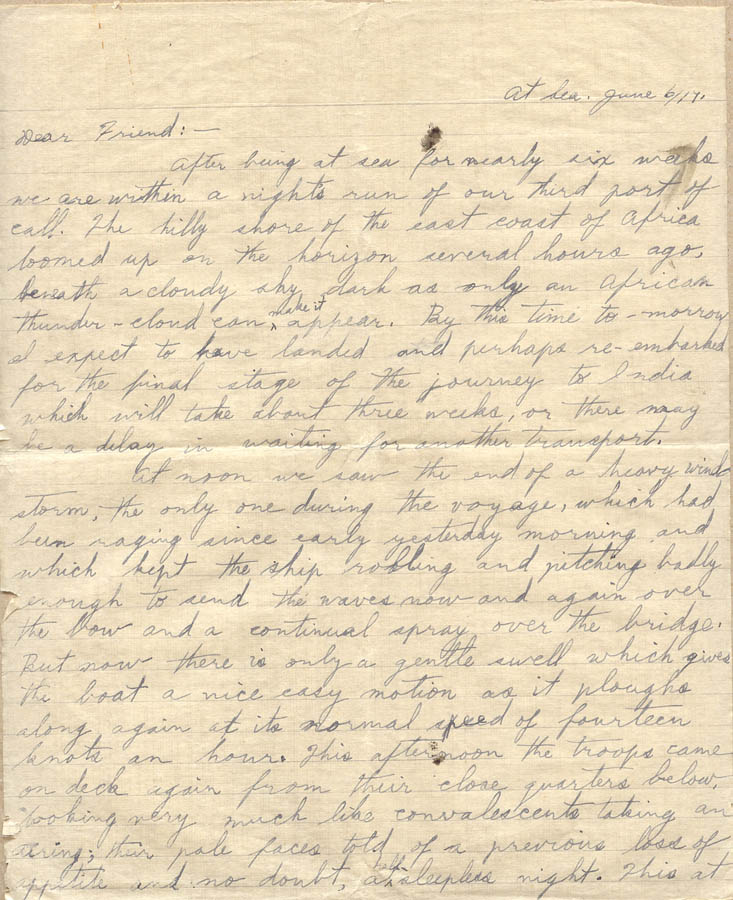 At Sea. June 6/17.
Dear Friend:—
After being at sea for nearly six weeks
we are within a nights run of our third port of
call. The hilly shore of the east coast of Africa
loomed up on the horizon several hours ago,
beneath a cloudy sky dark as only an African
thunder-cloud can make it appear. By this time to-morrow
I expect to have landed and perhaps re-embarked
for the final stage of the journey to India
which will take about three weeks, or there may
be a delay in waiting for another transport.
At noon we saw the end of a heavy wind
storm, the only one during the voyage, which had
been raging since early yesterday morning and
which kept the ship rolling and pitching badly
enough to send the waves now and again over
the bow and a continual spray over the bridge.
But now there is only a gentle swell which gives
the boat a nice easy motion as it ploughs
along again at its normal speed of fourteen
knots an hour. This afternoon the troops came
on deck again from their close quarters below,
looking very much like convalescents taking an
airing; their pale faces told of a previous loss of
appetite and no doubt, a sleepless night. This at